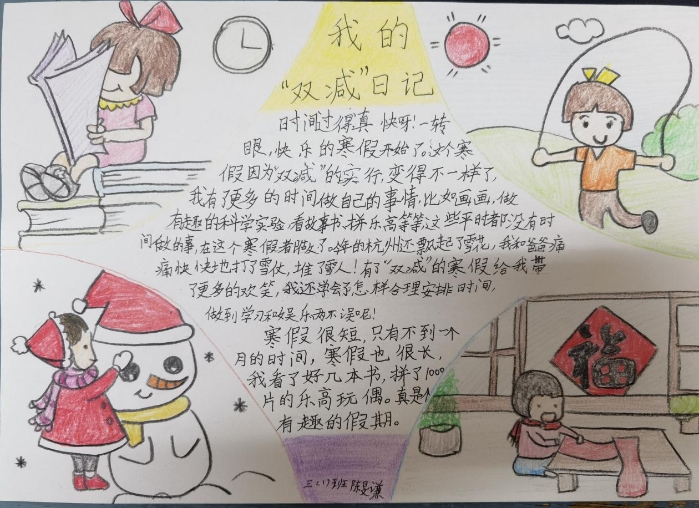 我的
“双减”日记
时间过得真快呀！一转
眼，快乐的寒假开始了。这个寒
假因为“双减”的实行，变得不一样了，
我有了更多的时间做自己的事情，比如画画，做
有趣的科学实验，看故事书，拼乐高等等，这些平时都没有时
间做的事，在这个寒假都做了。今年的杭州还飘起了雪花，我和爸爸痛
痛快快地打了雪仗，堆了雪人！有“双减”的寒假给我带
了更多的欢笑，我还学会了怎样合理安排时间，
做到学习和娱乐两不误呢！
寒假很短，只有不到一个
月的时间，寒假也很长，
我看了好几本书，拼了1000
片的乐高玩偶。真是个
有趣的假期。
福
三(1)班 陈